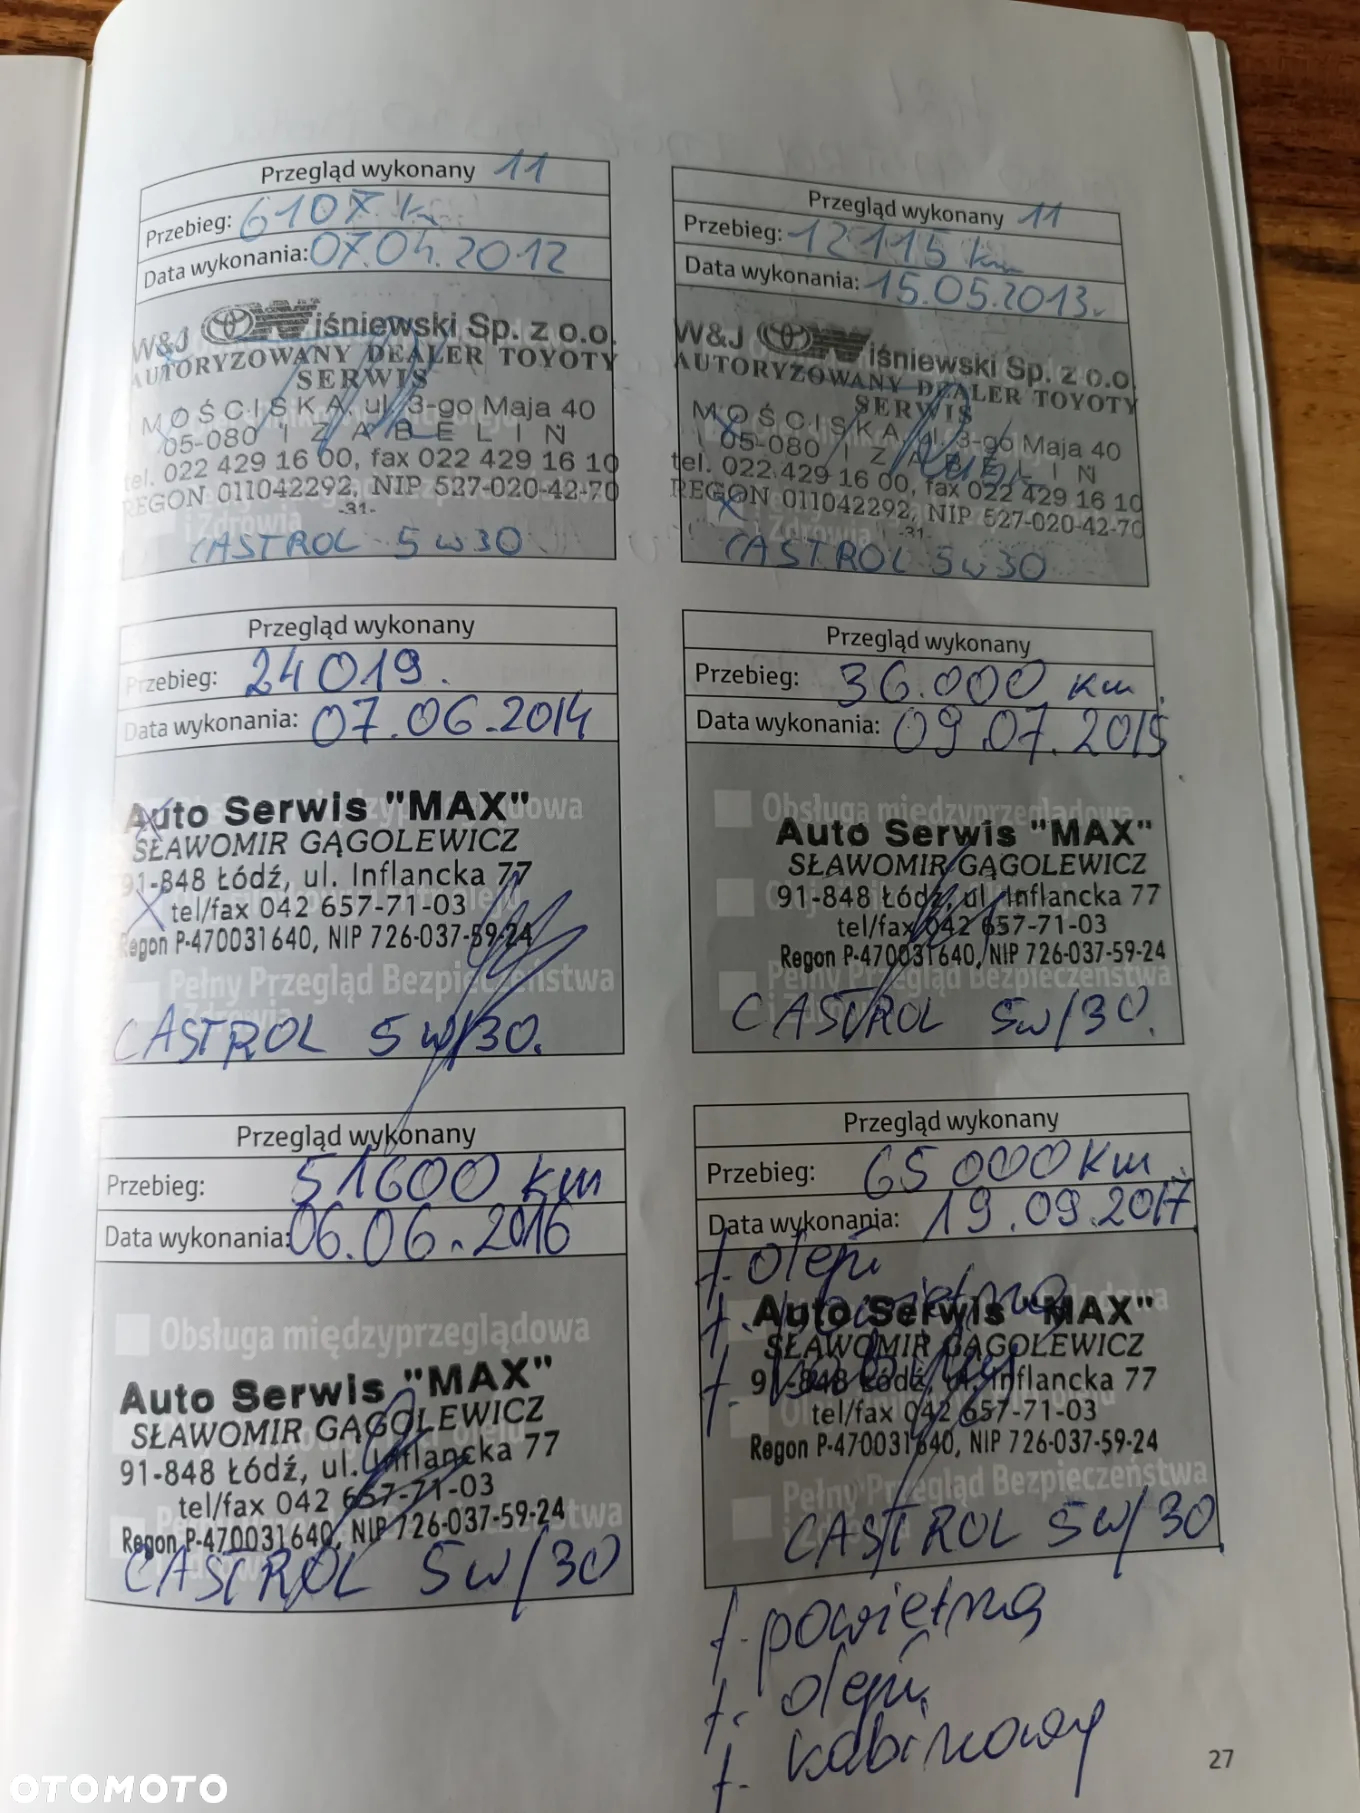 Przegląd wykonany 11
Przebieg: 6107 km
Data wykonania: 07.04.2012
W&J Wiśniewski Sp. z o.o.
AUTORYZOWANY DEALER TOYOTY
SERWIS
MOŚCISKA, ul. 3-go Maja 40
05-080 IZABELIN
tel. 022 429 16 00, fax 022 429 16 10
REGON 011042292, NIP 527-020-42-70
-31-
i Zdrowia
CASTROL 5w30
Przegląd wykonany 11
Przebieg: 12115 km
Data wykonania: 15.05.2013r
W&J Wiśniewski Sp. z o.o.
AUTORYZOWANY DEALER TOYOTY
SERWIS
MOŚCISKA, ul. 3-go Maja 40
05-080 IZABELIN
tel. 022 429 16 00, fax 022 429 16 10
REGON 011042292, NIP 527-020-42-70
-31-
CASTROL 5w30
Przegląd wykonany
Przebieg: 24019.
Data wykonania: 07.06.2014
Obsługa międzyprzeglądowa
Auto Serwis "MAX"
SŁAWOMIR GĄGOLEWICZ
91-848 Łódź, ul. Inflancka 77
tel/fax 042 657-71-03
Regon P-470031640, NIP 726-037-59-24
Pełny Przegląd Bezpieczeństwa
i Zdrowia
CASTROL 5w/30.
Przegląd wykonany
Przebieg: 36.000 km.
Data wykonania: 09.07.2015
Obsługa międzyprzeglądowa
Auto Serwis "MAX"
SŁAWOMIR GĄGOLEWICZ
91-848 Łódź, ul. Inflancka 77
tel/fax 042 657-71-03
Regon P-470031640, NIP 726-037-59-24
Pełny Przegląd Bezpieczeństwa
i Zdrowia
CASTROL 5w/30.
Przegląd wykonany
Przebieg: 51600 km
Data wykonania: 06.06.2016
Obsługa międzyprzeglądowa
Auto Serwis "MAX"
SŁAWOMIR GĄGOLEWICZ
91-848 Łódź, ul. Inflancka 77
tel/fax 042 657-71-03
Regon P-470031640, NIP 726-037-59-24
CASTROL 5w/30
Przegląd wykonany
Przebieg: 65000 Km.
Data wykonania: 19.09.2017
f. oleju
f. powietrza
f. kabinowy
Auto Serwis "MAX"
SŁAWOMIR GĄGOLEWICZ
91-848 Łódź, ul. Inflancka 77
tel/fax 042 657-71-03
Regon P-470031640, NIP 726-037-59-24
Pełny Przegląd Bezpieczeństwa
i Zdrowia
CASTROL 5w/30
f. powietrza
f. oleju
f. kabinowy
27
OTOMOTO